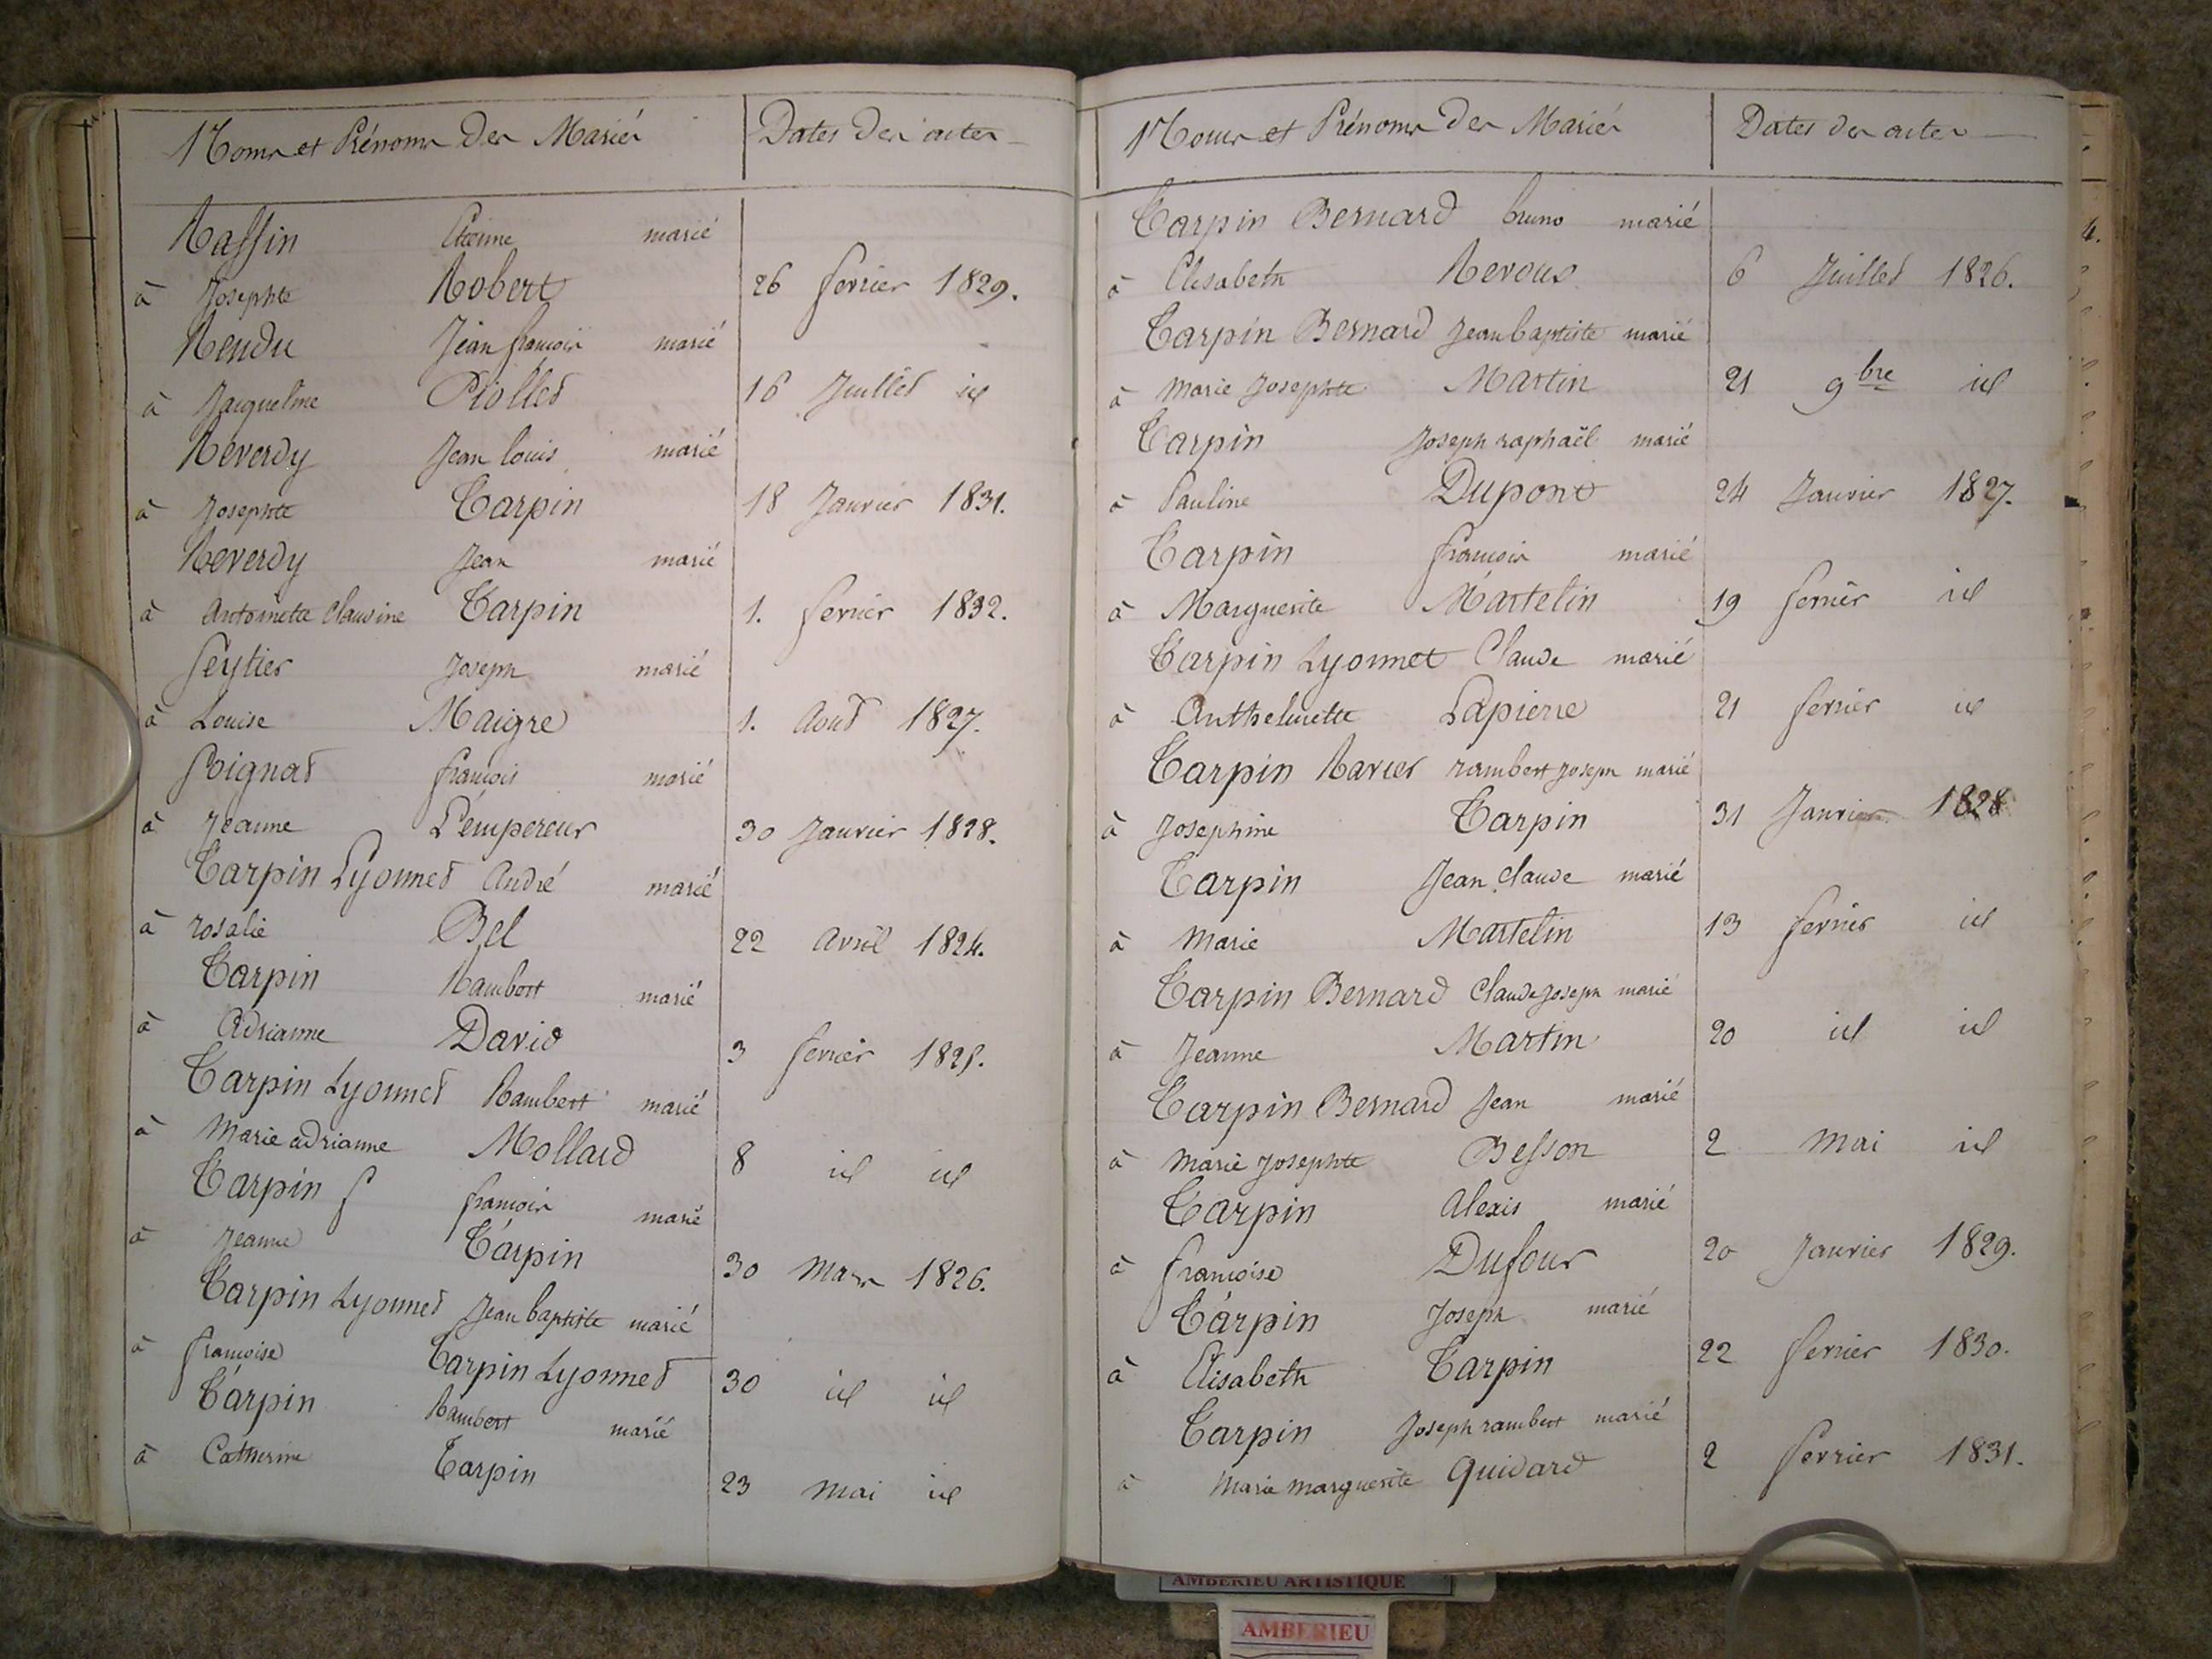 Noms et Prénoms des Mariés Dates des actes
Rassin Etienne marié
à Josephte Robert 26 fevrier 1829.
Rendu Jean françois marié
à Jacqueline Piollet 16 Juillet id
Reverdy Jean louis marié
à Josephte Tarpin 18 Janvier 1831.
Reverdy Jean marié
à Antoinette Claudine Tarpin 1. fevrier 1832.
Seytier Joseph marié
à Louise Maigre 1. Aout 1827.
Soignat françois marié
à Jeanne L'empereur 30 Janvier 1828.
Tarpin Lyonnet André marié
à rosalie Bel 22 Avril 1824.
Tarpin Rambert marié
à Adrianne David 3 fevrier 1825.
Tarpin Lyonnet Rambert marié
à Marie adrianne Mollard 8 id id
Tarpin f françois marié
à Jeanne Tarpin 30 Mars 1826.
Tarpin Lyonnet Jean baptiste marié
à françoise Tarpin Lyonnet 30 id id
Tarpin Rambert marié
à Catherine Tarpin 23 Mai id
Noms et Prénoms des Mariés Dates des actes
Tarpin Bernard bruno marié
à Elisabeth Revoux 6 Juillet 1826.
Tarpin Bernard Jean baptiste marié
à Marie Josephte Martin 21 9bre id
Tarpin Joseph raphaël marié
à Pauline Dupont 24 Janvier 1827.
Tarpin françois marié
à Marguerite Martelin 19 fevrier id
Tarpin Lyonnet Claude marié
à Anthelmette Lapierre 21 fevrier id
Tarpin Ravier rambert Joseph marié
à Josephine Tarpin 31 Janvier 1828
Tarpin Jean Claude marié
à Marie Martelin 13 fevrier id
Tarpin Bernard Claude Joseph marié
à Jeanne Martin 20 id id
Tarpin Bernard Jean marié
à Marie Josephte Besson 2 Mai id
Tarpin Alexis marié
à françoise Dufour 20 Janvier 1829.
Tarpin Joseph marié
à Elisabeth Tarpin 22 fevrier 1830.
Tarpin Joseph rambert marié
à Marie Marguerite Guidard 2 fevrier 1831.
4.
AMBERIEU ARTISTIQUE
AMBERIEU